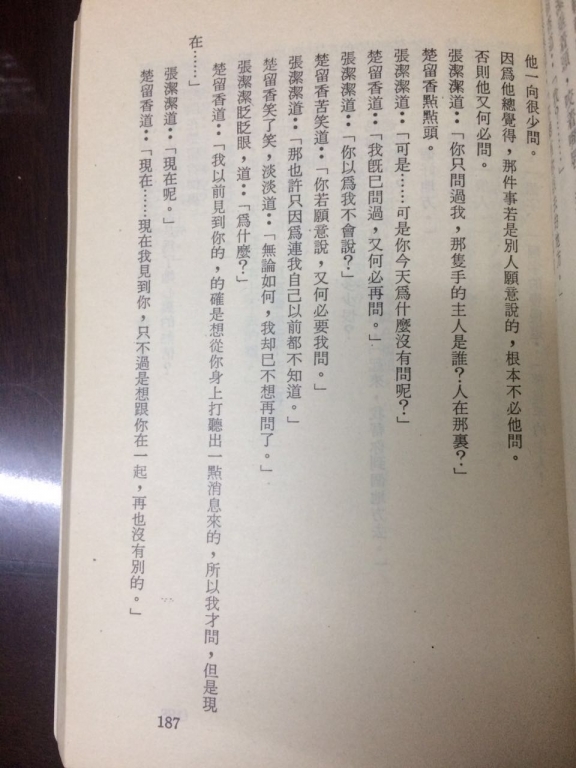 他一向很少問。
因爲他總覺得，那件事若是別人願意說的，根本不必他問。
否則他又何必問。
張潔潔道：「你只問過我，那隻手的主人是誰？人在那裏？」
楚留香點點頭。
張潔潔道：「可是……可是你今天爲什麼沒有問呢？」
楚留香道：「我旣已問過，又何必再問。」
張潔潔道：「你以爲我不會說？」
楚留香苦笑道：「你若願意說，又何必要我問。」
張潔潔道：「那也許只因爲連我自己以前都不知道。」
楚留香笑了笑，淡淡道：「無論如何，我却已不想再問了。」
張潔潔眨眨眼，道：「爲什麼？」
楚留香道：「我以前見到你的，的確是想從你身上打聽出一點消息來的，所以我才問，但是現
在……」
張潔潔道：「現在呢。」
楚留香道：「現在……現在我見到你，只不過是想跟你在一起，再也沒有別的。」
187